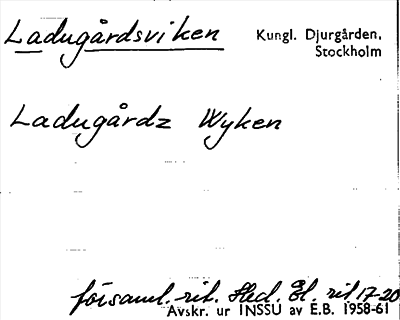 Ladugårdsviken
Kungl. Djurgården,
Stockholm
Ladugårdz Wyken
församl. rit. Hed. El. rit 17-20
Avskr. ur INSSU av E.B. 1958-61